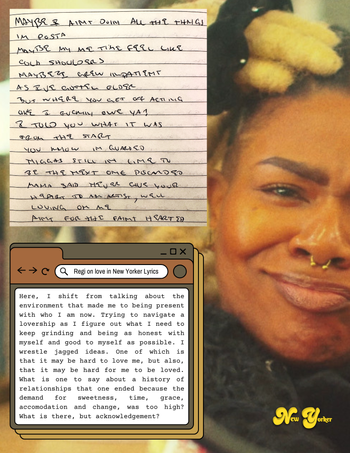 MAYBE I AINT DOIN ALL THE THINGS
IM POSTA
MAYBE MY ME TIME FEEL LIKE
COLD SHOULDERS
MAYBE I'VE GREW IMPATIENT
AS I'VE GOTTEN OLDER
BUT WHERE YOU GET OFF ACTING
LIKE I FUCKIN OWE YA?
I TOLD YOU WHAT IT WAS
FROM THE START
YOU KNOW IM GUARDED
NIGGAS STILL IN LINE TO
BE THE NEXT ONE DISCARDED
MAMA SAID NEVER GIVE YOUR
HEART TO AN ARTIST, WELL
LOVING ON ME
AINT FOR THE FAINT HEARTED
Regi on love in New Yorker Lyrics
Here, I shift from talking about the
environment that made me to being present
with who I am now. Trying to navigate a
lovership as I figure out what I need to
keep grinding and being as honest with
myself and good to myself as possible. I
wrestle jagged ideas. One of which is
that it may be hard to love me, but also,
that it may be hard for me to be loved.
What is one to say about a history of
relationships that one ended because the
demand for sweetness, time, grace,
accomodation and change, was too high?
What is there, but acknowledgement?
New Yorker